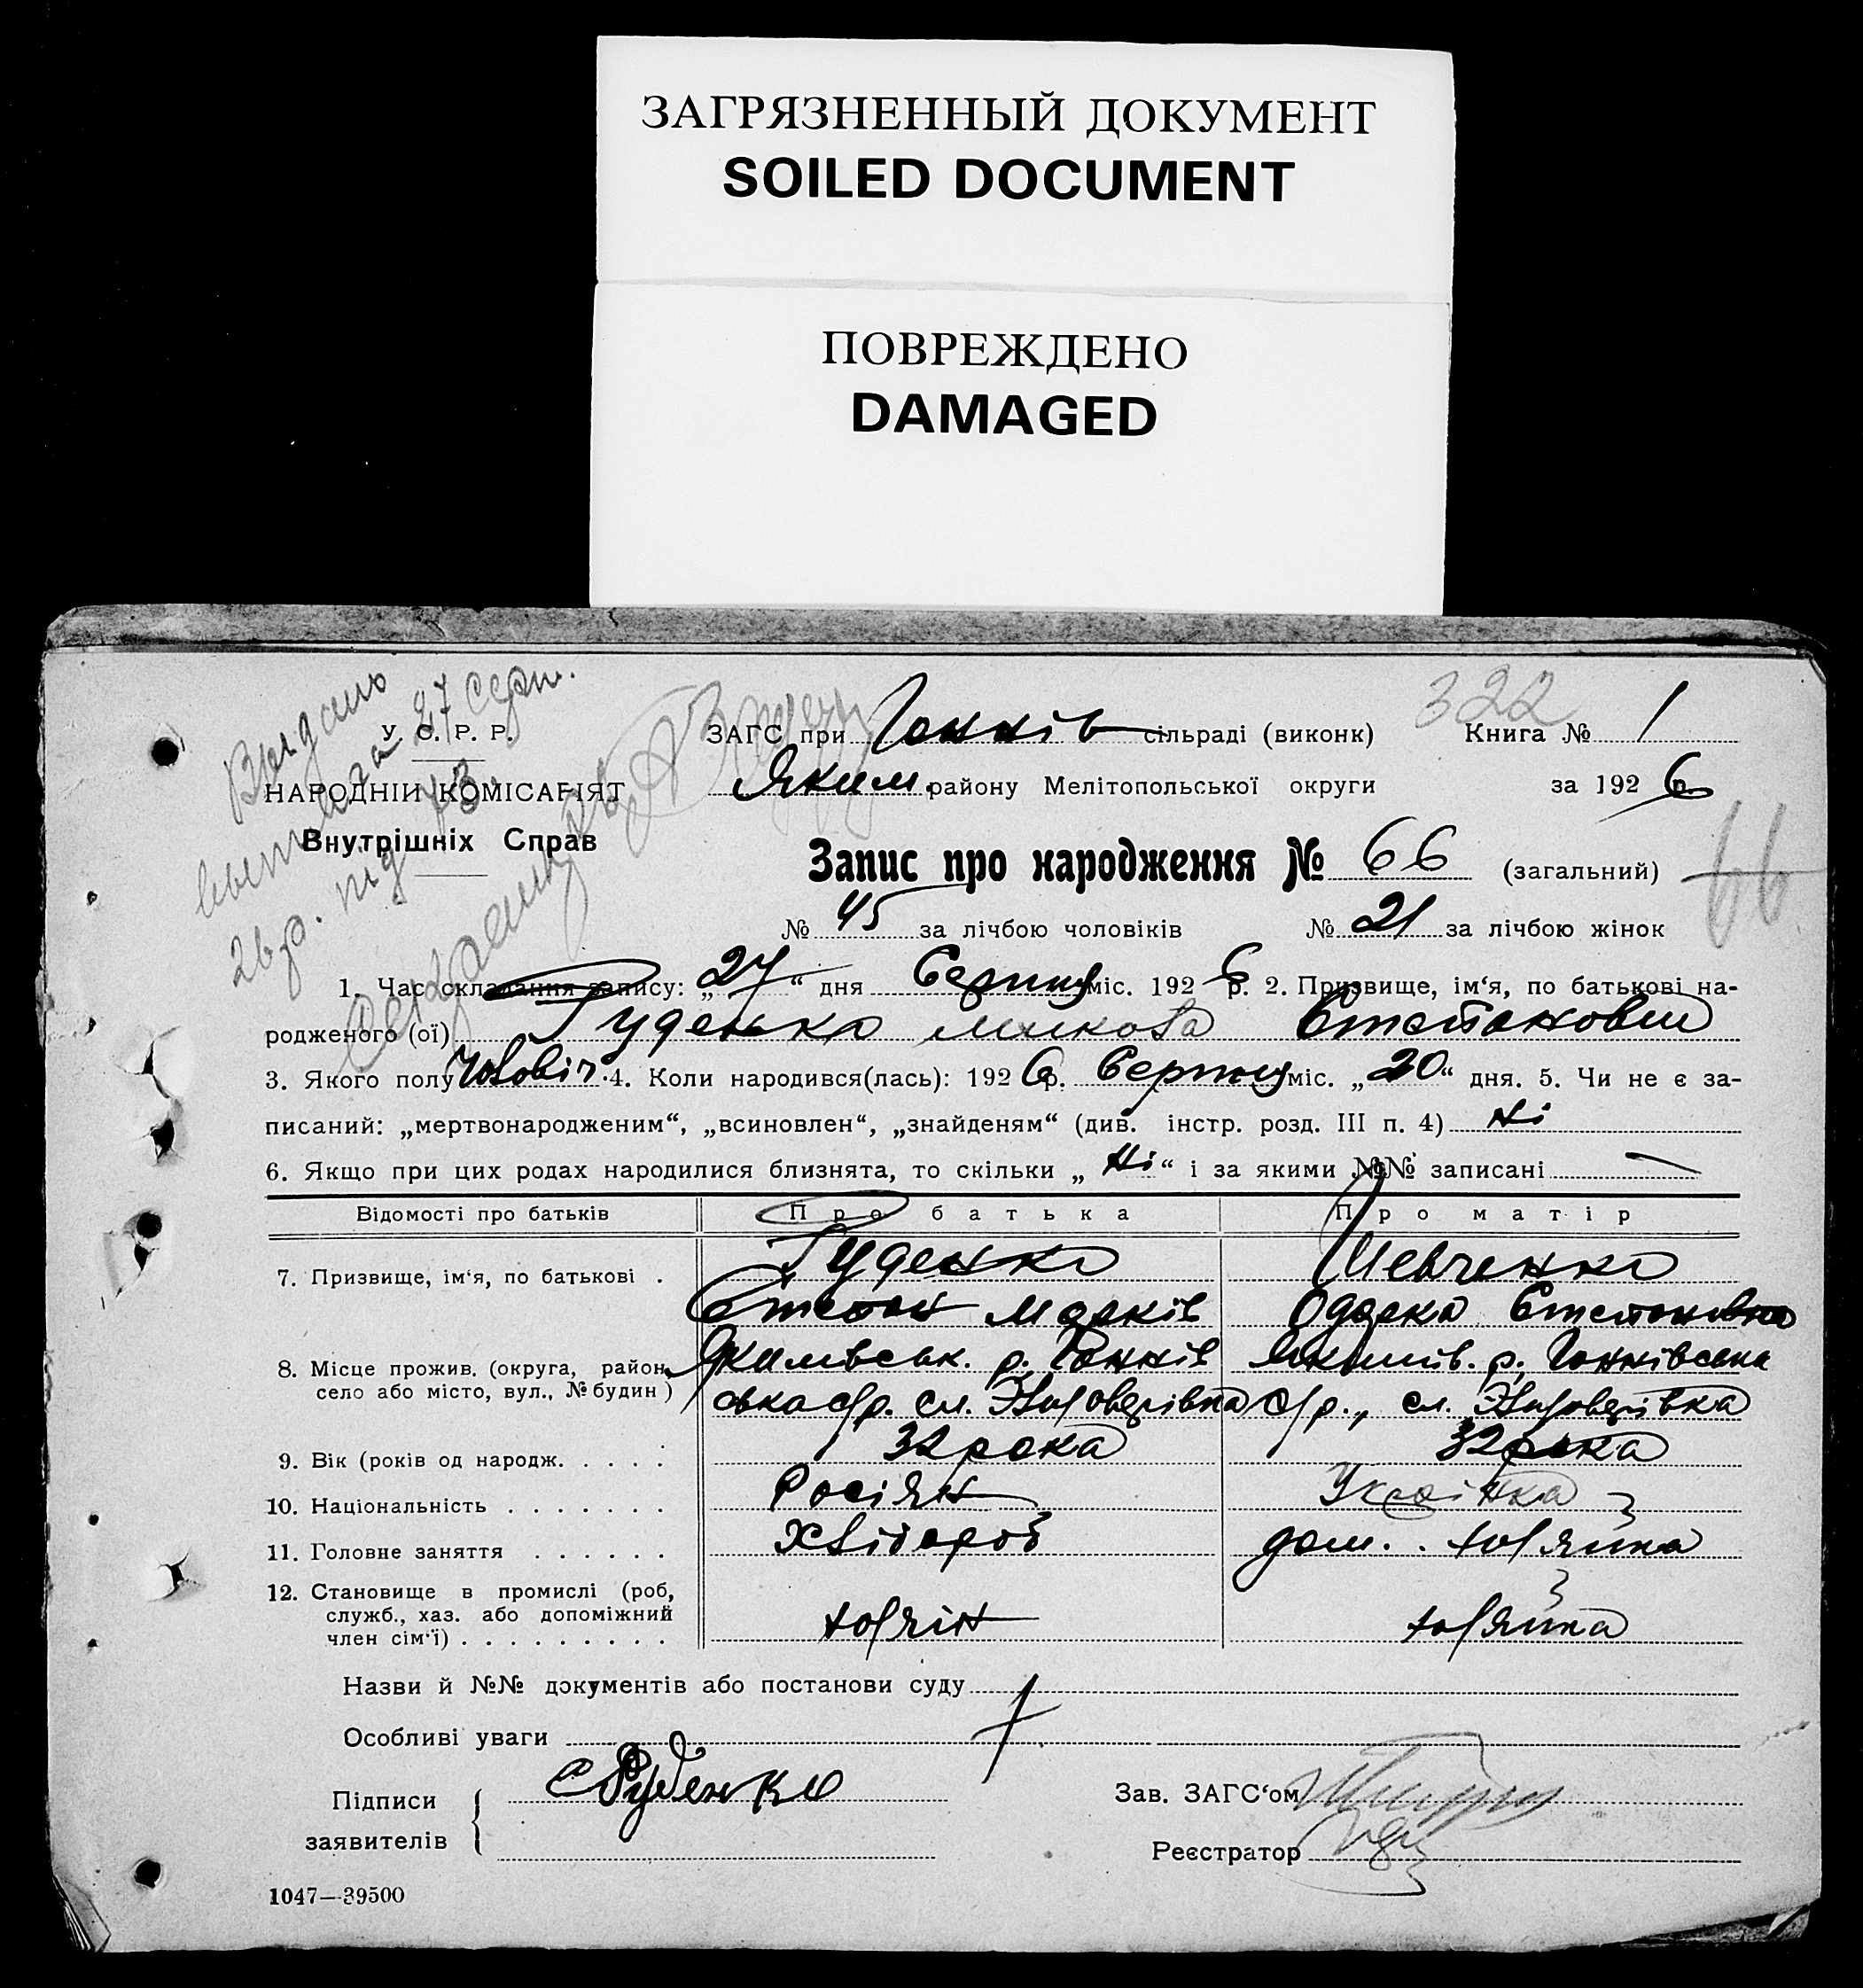 ЗАГРЯЗНЕННЫЙ ДОКУМЕНТ
SOILED DOCUMENT
ПОВРЕЖДЕНО
DAMAGED
Видано
27 серп.
26 р. під 73
322
У. С. Р. Р.
НАРОДНІЙ КОМІСАРІЯТ
Внутрішніх Справ
ЗАГС при Ганнів сільраді (виконк) Книга № 1
Яким. району Мелітопольської округи за 1926 р.
Запис про народження № 66 (загальний)
66
№ 45 за лічбою чоловіків № 21 за лічбою жінок
1. Час складання запису: „27“ дня Серпня міс. 1926 р. 2. Призвище, ім‘я, по батькові на-
родженого (ої) Руденко Микола Степанович
3. Якого полу Чоловіч. 4. Коли народився(лась): 1926 р. Серпня міс. „20“ дня. 5. Чи не є за-
писаний: „мертвонародженим“, „всиновлен“, „знайденям“ (див. інстр. розд. III п. 4) Ні
6. Якщо при цих родах народилися близнята, то скільки „Ні“ і за якими №№ записані —
Відомості про батьків Про батька Про матір
7. Призвище, ім‘я, по батькові . Руденко Шевченко
Степан Марків Одарка Степановна
8. Місце прожив. (округа, район, Якимівськ. р. Ганнів Якимів. р. Ганнівська
село або місто, вул., № будин) ська с/р. сл. с/р., сл.
9. Вік (років од народж. . . . . 32 рока 32 рока
10. Національність . . . . . . . Росіян Українка
11. Головне заняття . . . . . . Хлібороб дом.
12. Становище в промислі (роб,
служб., хаз. або допоміжний
член сім‘ї) . . . . . . . . .
Назви й №№ документів або постанови суду
Особливі уваги
Підписи
заявителів
С Руденко
Зав. ЗАГС‘ом
Реєстратор
1047—39500